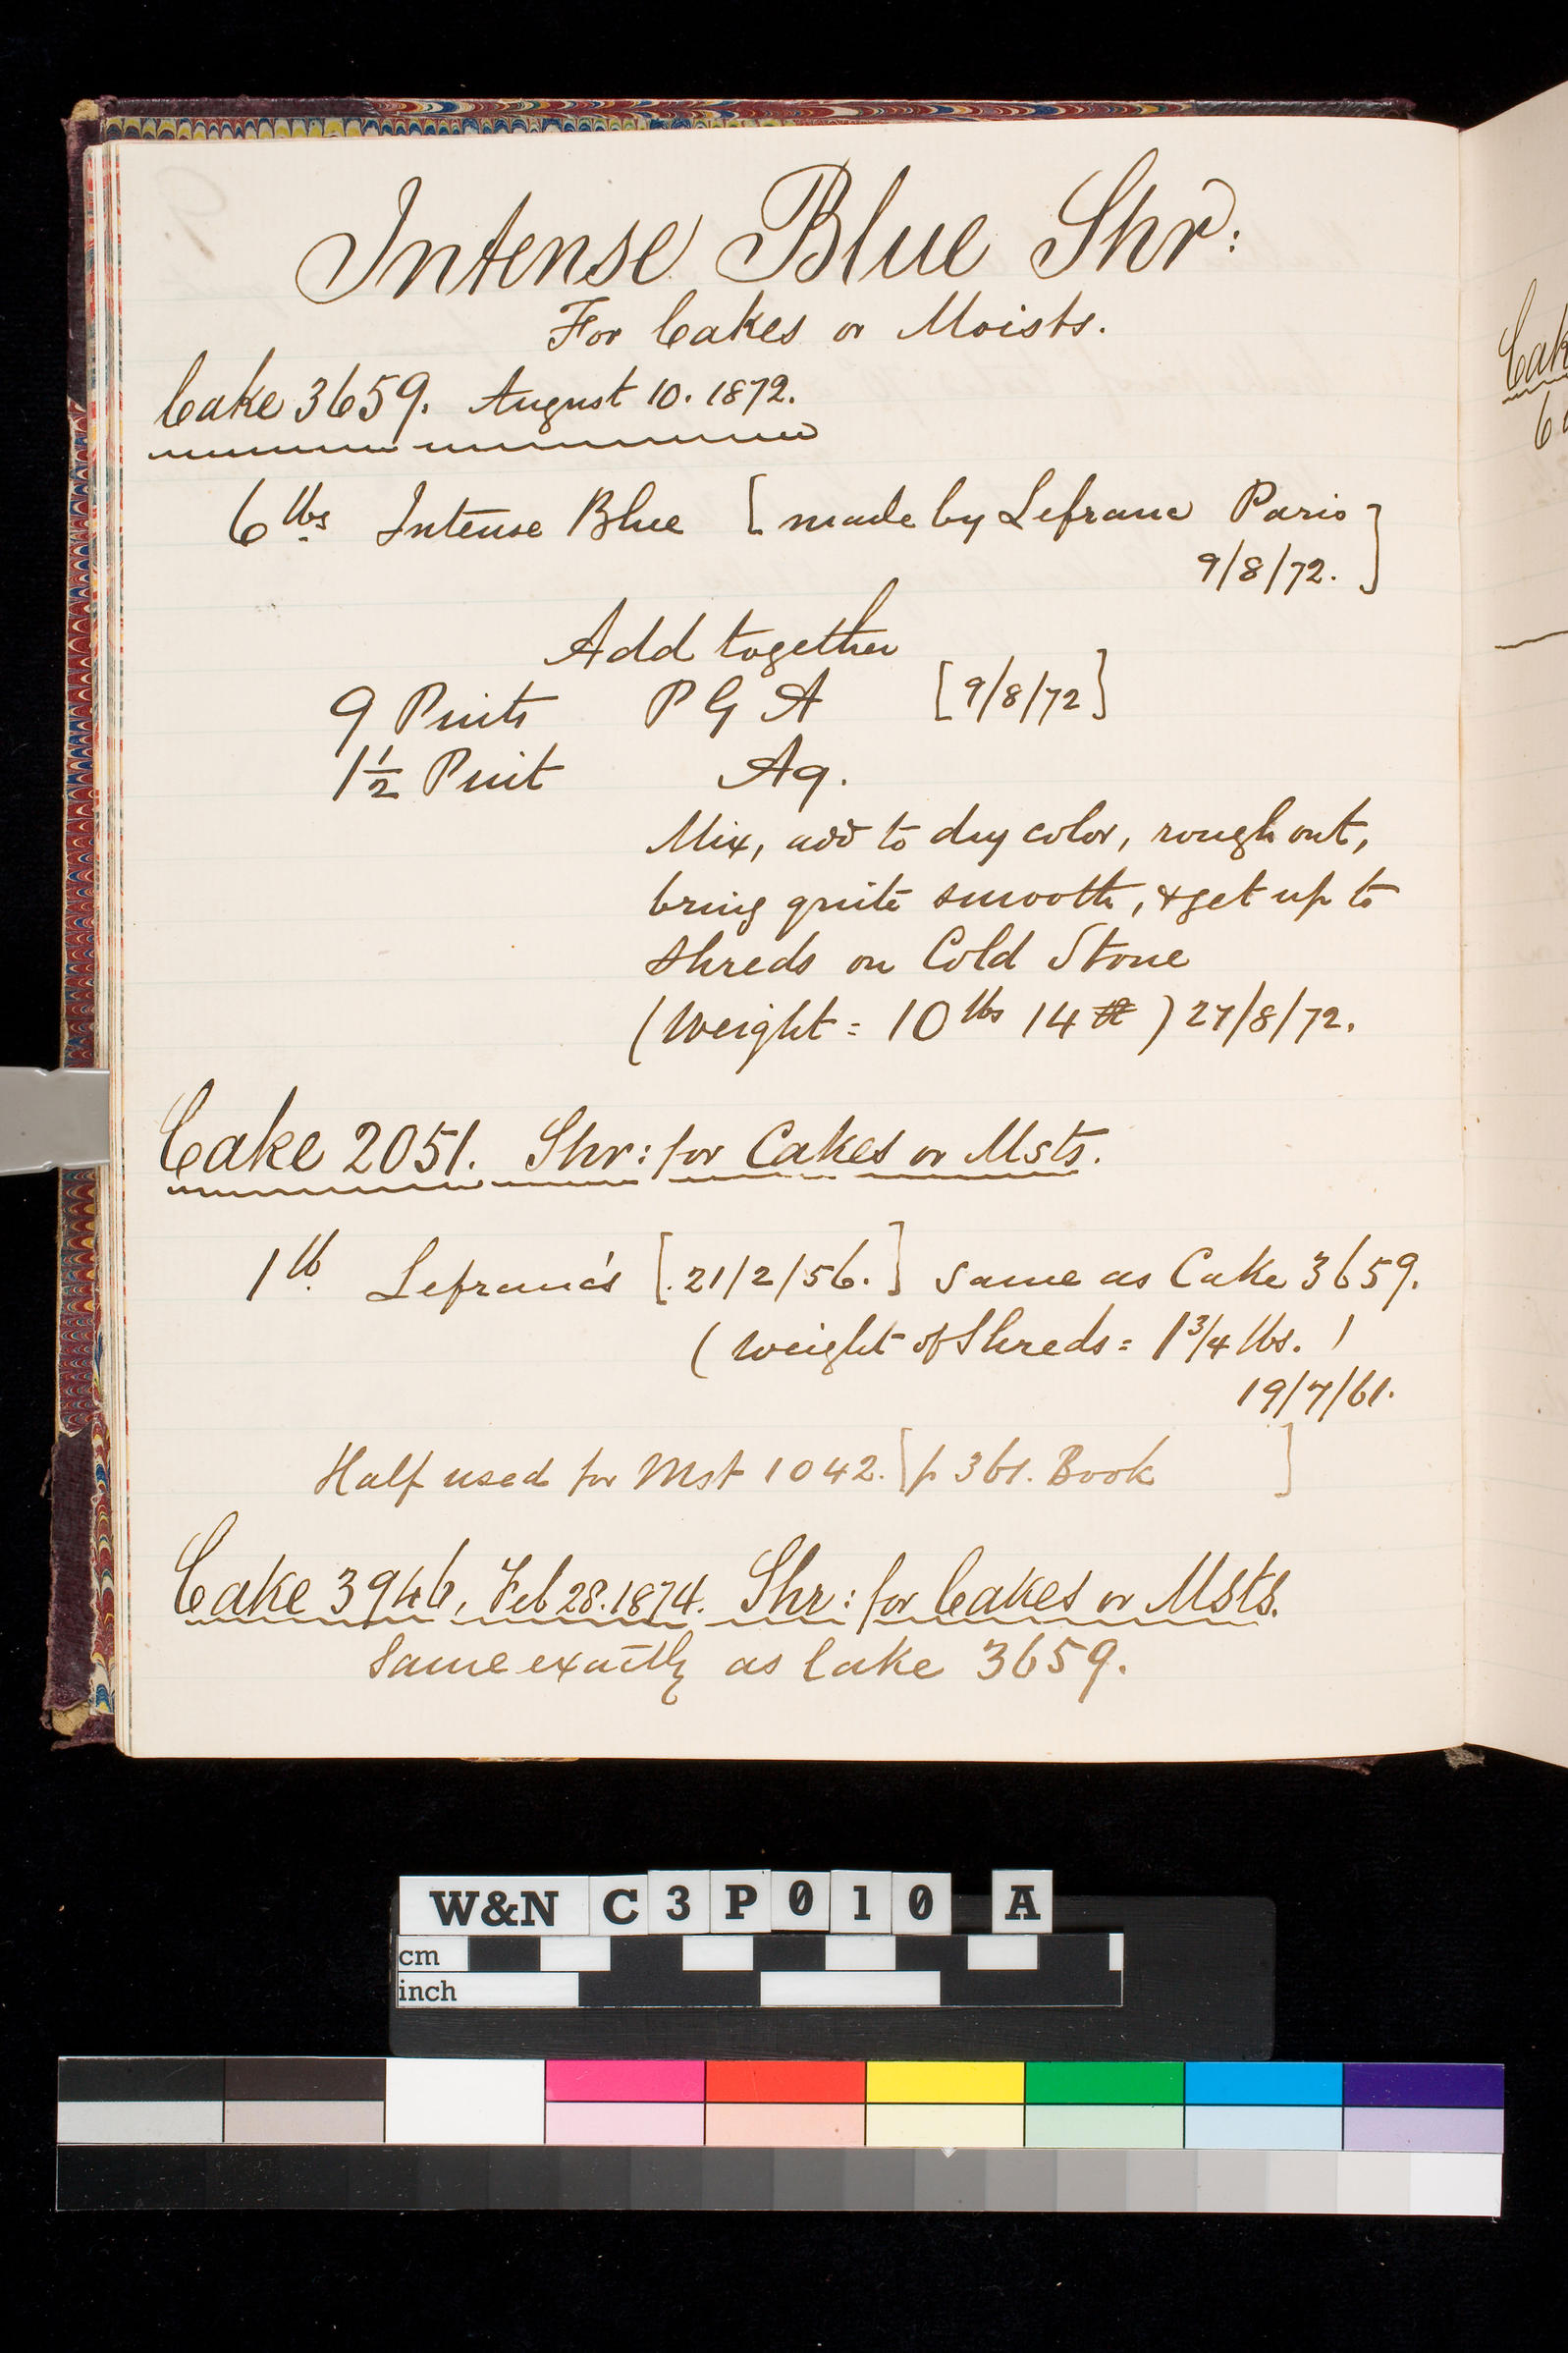 Intense Blue Shr:
For Cakes or Moists.
Cake 3659. August 10. 1872.
6 lbs Intense Blue [made by Lefranc Paris
9/8/72.]
Add together
9 Pints P G A [9/8/72]
1½ Pint Aq.
Mix, add to dry color, rough out,
bring quite smooth, & get up to
shreds on Cold Stone
(Weight = 10 lbs 14 ) 27/8/72.
Cake 2051. Shr: for Cakes or Msts.
1 lb Lefranc's [21/2/56.] same as Cake 3659.
(Weight of Shreds = 1 3/4 lbs. )
19/7/61.
Half used for Mst 1042. [p 361. Book ]
Cake 3946, Feb 28. 1874. Shr: for Cakes or Msts.
Same exactly as Cake 3659.
Cak
6
W&N C3P010 A
cm
inch